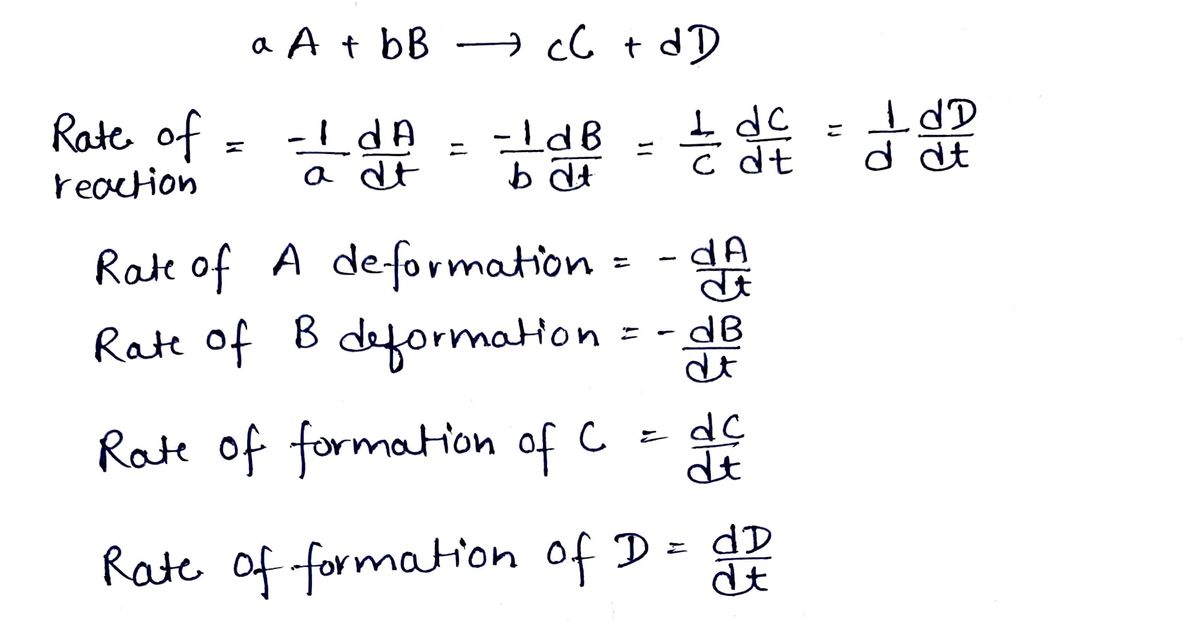 a A + bB ⟶ cC + dD
Rate of reaction = -1/a dA/dt = -1/b dB/dt = 1/c dC/dt = 1/d dD/dt
Rate of A deformation = - dA/dt
Rate of B deformation = - dB/dt
Rate of formation of C = dC/dt
Rate of formation of D = dD/dt